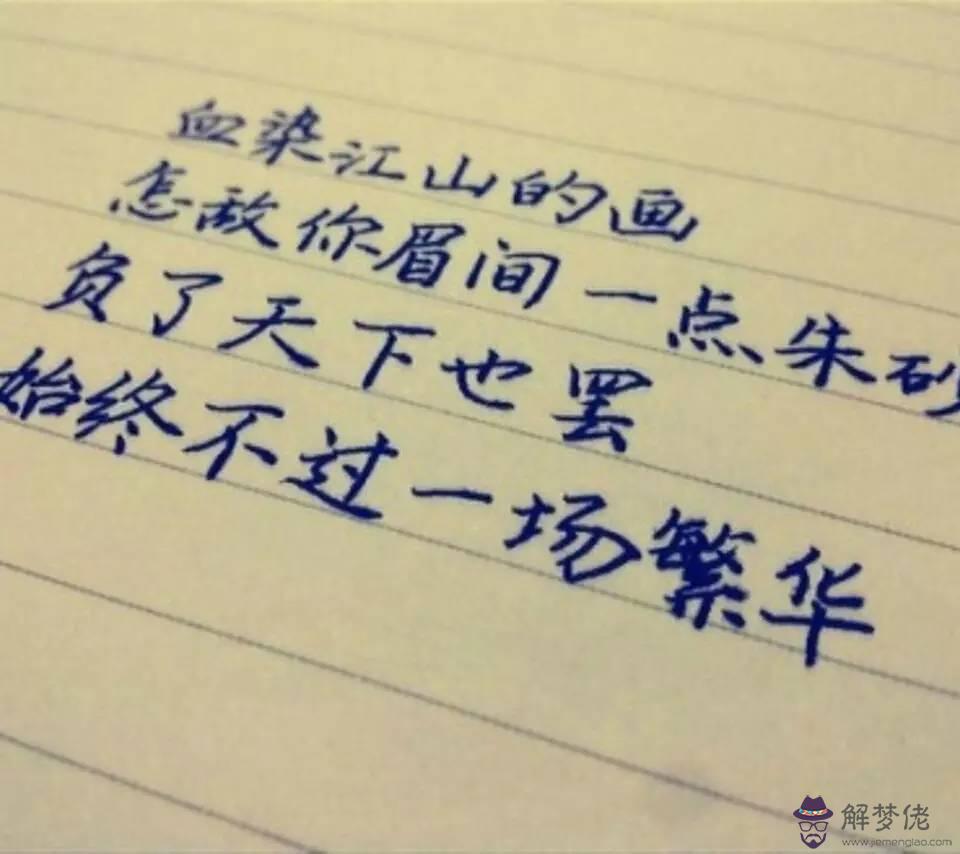 血染江山的画
怎敌你眉间一点朱砂
负了天下也罢
始终不过一场繁华
解梦佬
www.jiemenglao.com